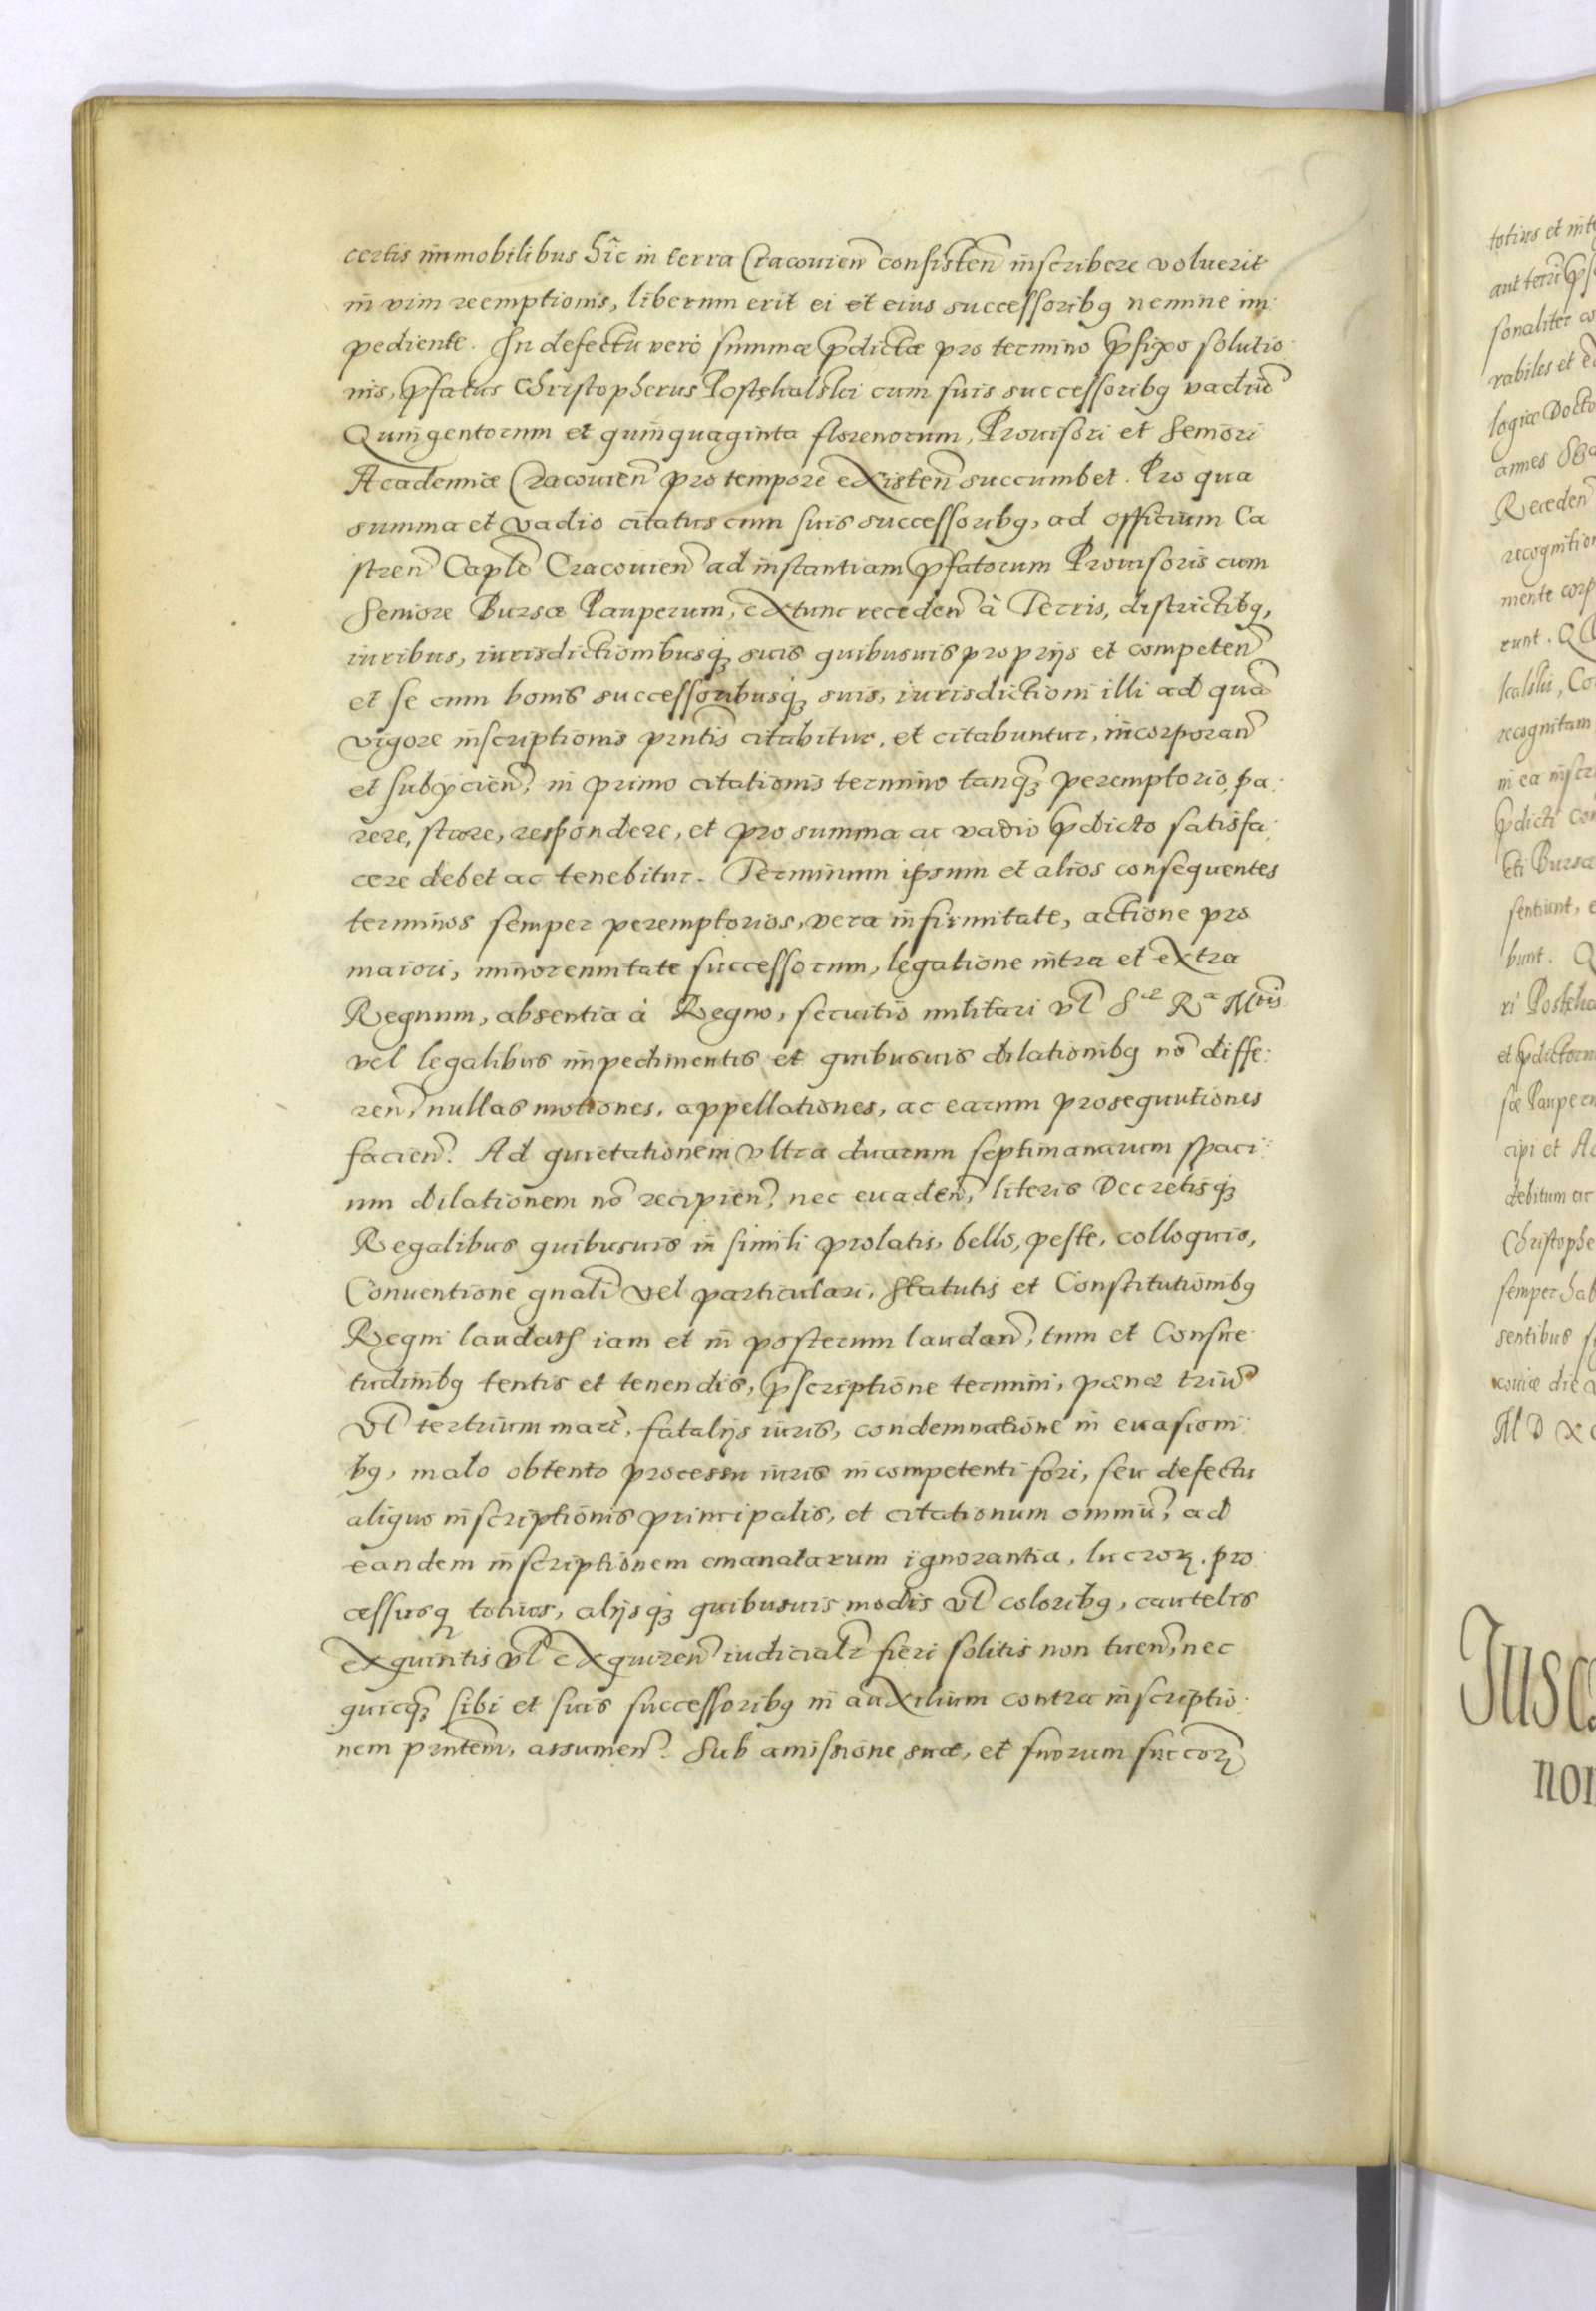 certis immobilibus hîc in terra Cracouien̄ consisten̄ inscribere voluerit
in vim reemptionis, liberum erit ei et eius successoribꝫ nemine im:
pediente. In defectu verò summæ p̄dictæ pro termino p̄fixo solutio:
nis, p̄fatus Christopherus Postękalski cum suis successoribꝫ vadiū
Quingentorum et quinquaginta florenorum, Prouisori et Seniori
Academiæ Cracouien̄ pro tempore existen̄ succumbet. Pro qua
summa et vadio citatus cum suis successoribꝫ, ad officium Ca
stren̄ Capłe Cracouien̄ ad instantiam p̄fatorum Prouisoris cum
Seniore Bursæ Pauperum, extunc receden̄ à Terris, districtibꝫ,
iuribus, iurisdictionibusqꝫ suis quibusuis proprijs et competen̄
et se cum bonis successoribusqꝫ suis, iurisdictioni illi ad quā
vigore inscriptionis pn̄tis citabitur, et citabuntur, incorporan̄
et subijcien̄, in primo citationis termino tanqꝫ peremptorio, pa:
rere, stare, respondere, et pro summa ac vadio p̄dicto satisfa:
cere debet ac tenebitur. Terminum ipsum et alios consequentes
terminos semper peremptorios, vera infirmitate, actione pro
maiori, minorennitate successorum, legatione intra et extra
Regnum, absentia à Regno, seruitio militari vl̄ Sᵃᵉ Rᵃᵉ Mᵗⁱˢ
vel legalibus impedimentis et quibusuis dilationibꝫ nō diffe:
ren̄, nullas motiones, appellationes, ac earum prosequutiones
facien̄. Ad quietationem vltra duarum septimanarum spaci:
um dilationem nō recipien̄, nec euaden̄, literis Decretisqꝫ
Regalibus quibusuis in simili prolatis, bello, peste, colloquio,
Conuentione gnali vel particulari, Statutis et Constitutionibꝫ
Regni laudatis iam et in posterum laudan̄, tum et Consue
tudinibꝫ tentis et tenendis, p̄scriptione termini, pœnæ triū
vl̄ tertrium marc̄, fatalijs iuris, condemnatione in euasioni:
bꝫ, malo obtento processu iuris incompetenti fori, seu defectu
aliquo inscriptionis principalis, et citationum omniū, ad
eandem inscriptionem emanatarum ignorantia, lucroꝝ pro:
cessusqꝫ totius, alijsqꝫ quibusuis modis vl̄ coloribꝫ, cautelis
exquisitis vl̄ exquiren̄ iudicialr̄ fieri solitis non tuen̄, nec
quicqꝫ sibi et suis successoribꝫ in auxilium contra inscriptio:
nem pn̄tem, assumen̄. Sub amissione suæ, et suorum succoꝝ